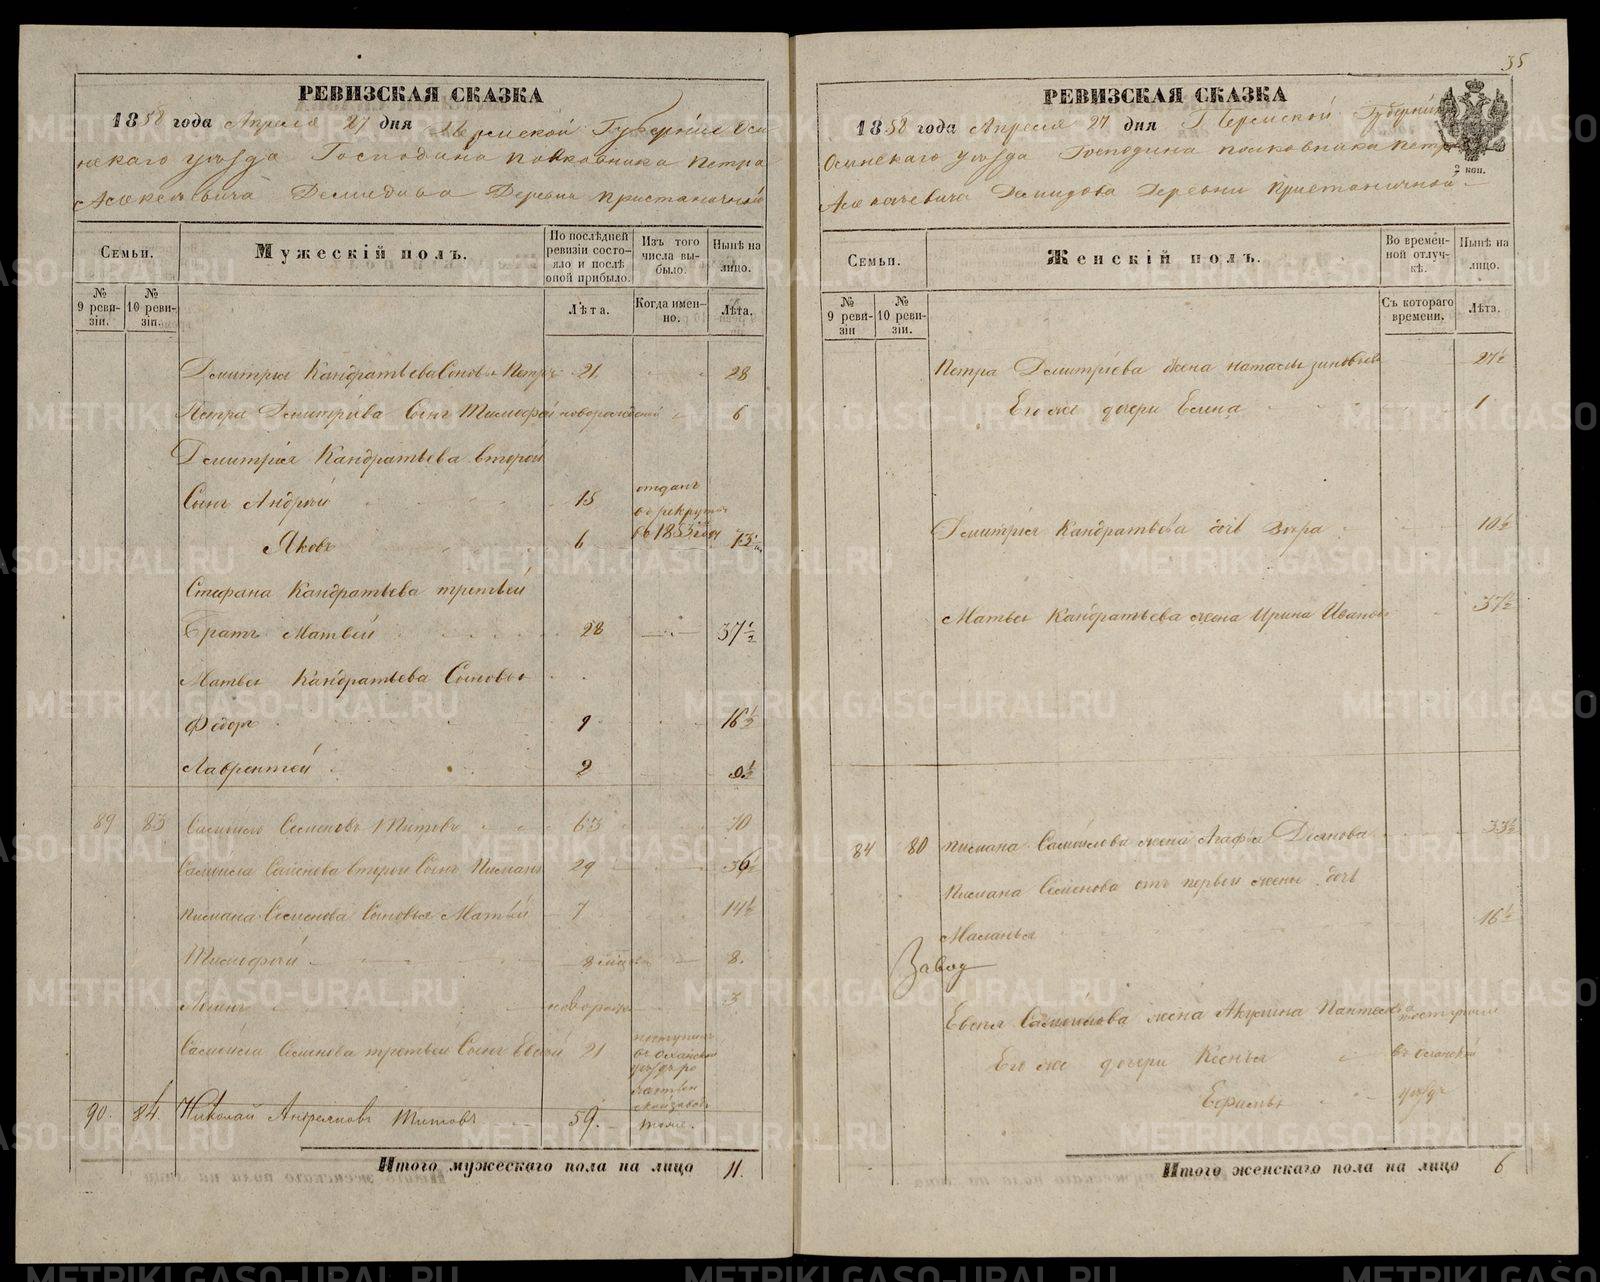 РЕВИЗСКАЯ СКАЗКА
1858 года Апреля 27 дня Пермской Губернии Осин
нскаго уѣзда Господина полковника Петра
Алексѣевича Демидова Деревни Пристаничной
Семьи.
Мужескій полъ.
По послѣдней ревизіи состояло и послѣ оной прибыло.
Изъ того числа выбыло.
Нынѣ на лицо.
№ 9 ревизіи.
№ 10 ревизіи.
Лѣта.
Когда именно.
Лѣта.
Дмитрія Кандратьева Сыновья Петръ 21 28
Петра Дмитріева Сынъ Тимофей новорожденой 6
Дмитрія Кандратьева второй
Сынъ Андрей 15 отданъ въ рекруты въ 1853 году
Яковъ 6 13½
Стефана Кандратьева третьей
Братъ Матвей 28 37½
Матвея Кандратьева Сыновья
Федоръ 9 16½
Лаврентей 2 9½
89 83 Самойло Семеновъ Титовъ 63 70
Самойла Семенова второй Сынъ Пимань 29 36½
Пимана Семенова Сыновья Матвей 7 14½
Тимофей 8
новорож 3
Самойла Семенова третьей Сынъ Евсей 21 поступилъ въ Оханской уѣздъ
90. 84. Николай Антреяновъ Титовъ 59. тоже.
Итого мужескаго пола на лицо 11.
35
РЕВИЗСКАЯ СКАЗКА
1858 года Апреля 27 дня Пермской Губерніи
Осинскаго уѣзда Господина полковника Петра
Алексѣевича Демидова Деревни Пристаничной
2 коп.
Семьи.
Женскій полъ.
Во временной отлучкѣ.
Нынѣ на лицо.
№ 9 ревизіи
№ 10 ревизіи.
Съ котораго времени.
Лѣта.
Петра Дмитріева жена Наталья Зиновьева 27½
Его же дочери Елена 1
Дмитрія Кандратьева дочь Вѣра 10½
Матвея Кандратьева жена Ирина Иванова 37½
84 80 Пимана Самойлова жена Агафья Демянова 33½
Пимана Семенова отъ первой жены дочь
Маланья 16½
Завод
Евсея Самойлова жена Акулина Пантелева поступили
Его же дочери Ксенья въ Оханской
Ефимья уѣздъ
Итого женскаго пола на лицо 6
METRIKI.GASO-URAL.RU